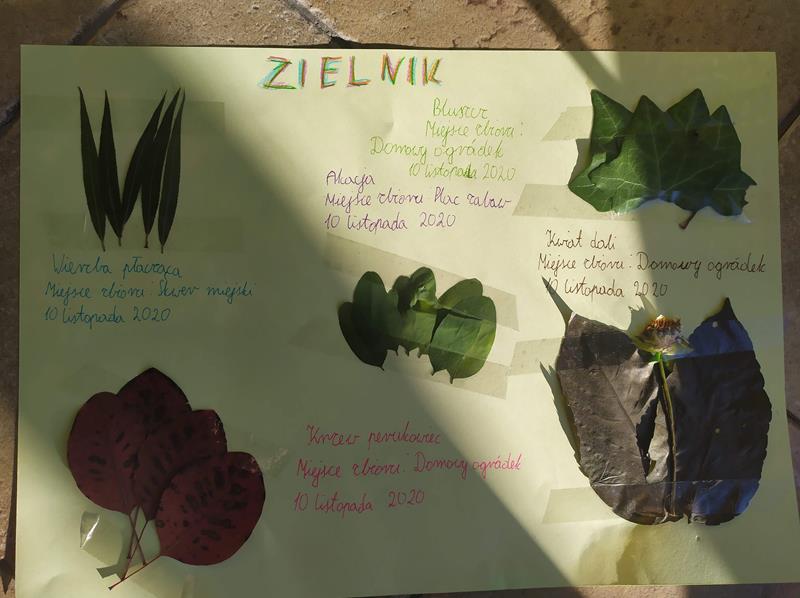 ZIELNIK
Bluszcz
Miejsce zbioru:
Domowy ogródek
10 listopada 2020
Akacja
Miejsce zbioru: Plac zabaw
10 listopada 2020
Kwiat dali
Miejsce zbioru: Domowy ogródek
10 listopada 2020
Wierzba płacząca
Miejsce zbioru: Skwer miejski
10 listopada 2020
Krzew perukowiec
Miejsce zbioru: Domowy ogródek
10 listopada 2020